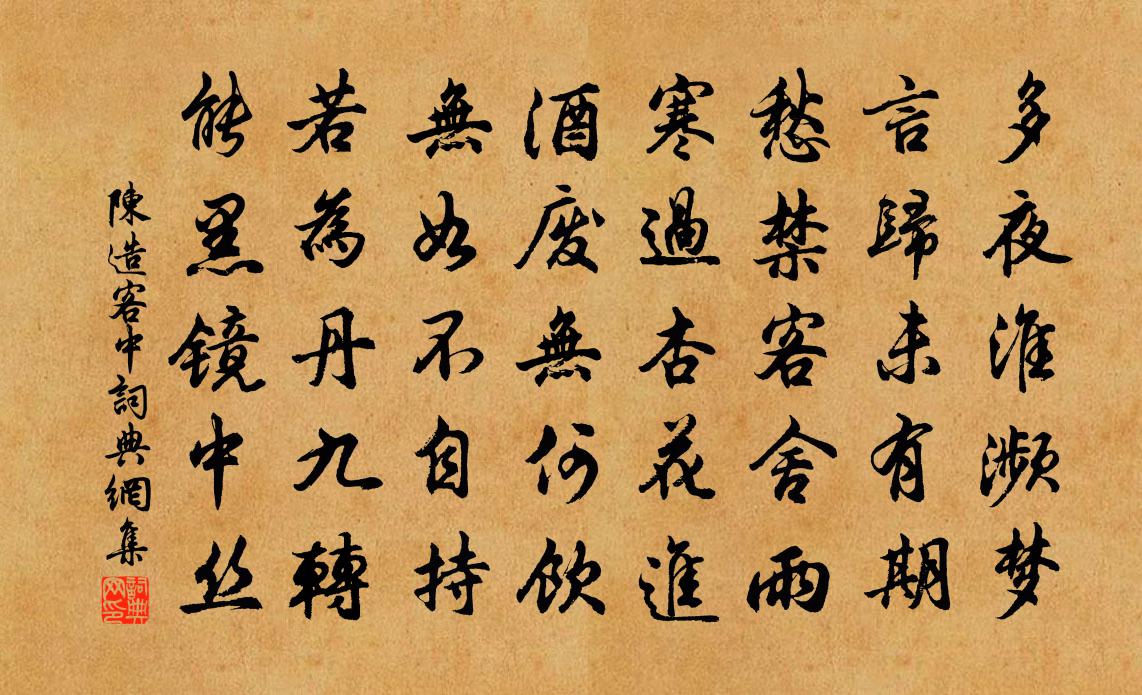 多夜淮濒梦
言歸未有期
愁禁客舍雨
寒過杏花進
酒废無何飲
無如不自持
若為丹九轉
能黑鏡中丝
陳造客中詞典網集
詞典网印